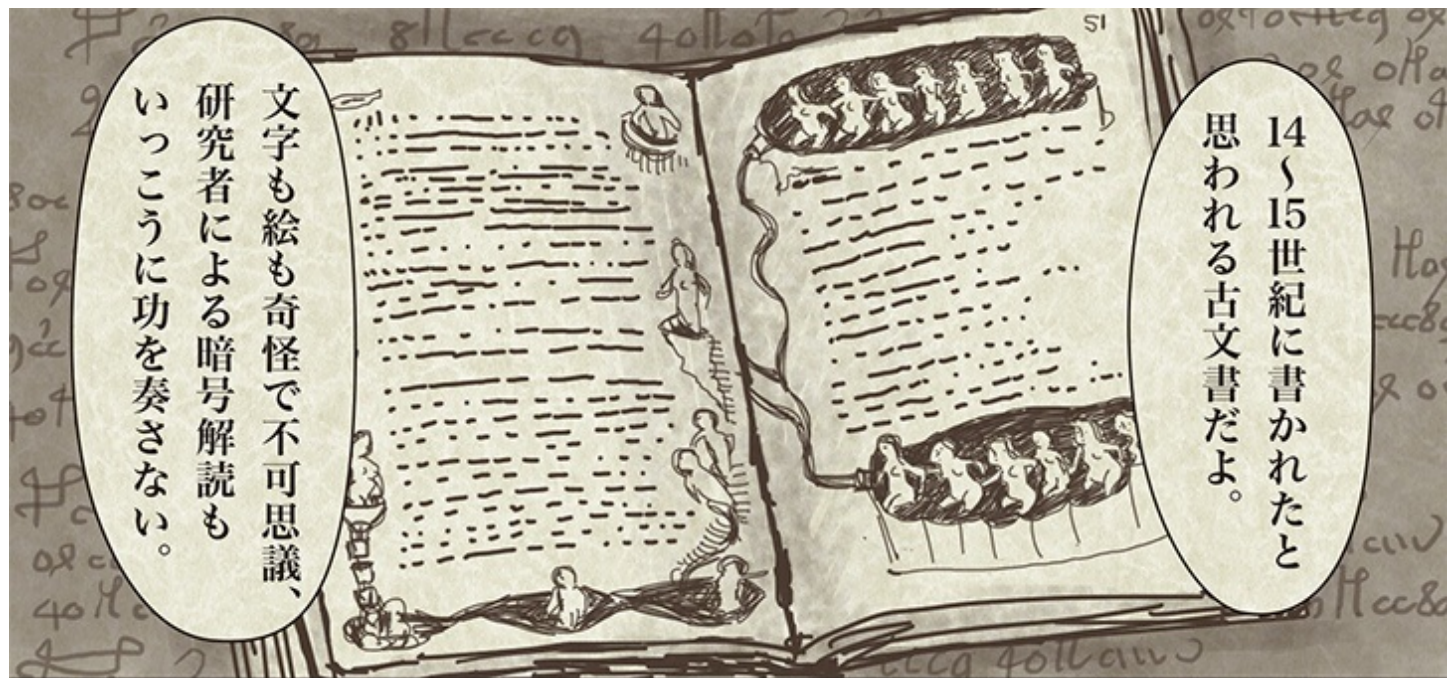 14～15世紀に書かれたと
思われる古文書だよ。
文字も絵も奇怪で不可思議、
研究者による暗号解読も
いっこうに功を奏さない。